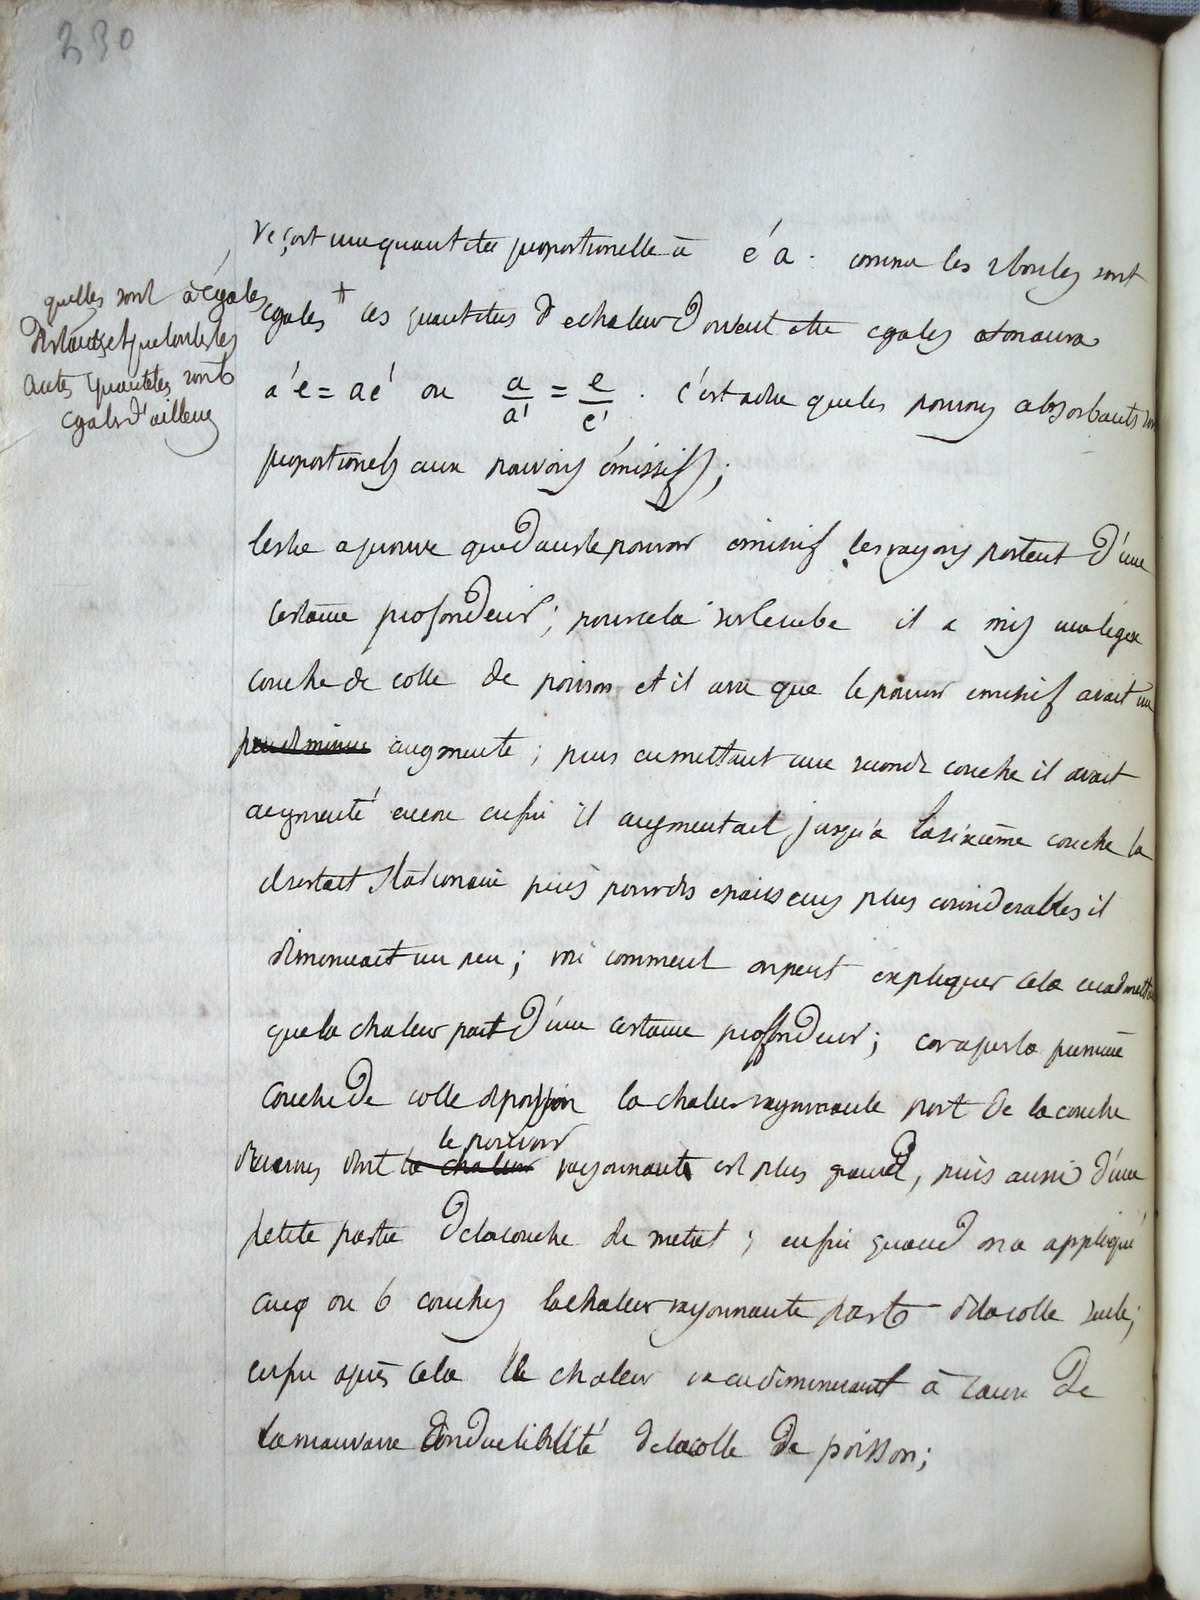 230
reçoit une quantitée proportionelle à e'a. comme les 2 boules sont
quelles sont à égales
distances et que toutes les
autes quantités sont
egales d'ailleurs
egales + les quantitées de chaleur doivent etre egales et on aura
a'e = ae' ou a/a' = e/e' . c'est adire que les pouvoirs absorbants sont
proportionels aux pouvoirs émissifs;
leslie a prouvé que dans le pouvoir emissif les rayons portent d'une
certaine profondeur; pour cela sur le cube il a mis une légere
couche de colle de poisson et il a vu que le pouvoir emissif avait un
peu diminué augmenté; puis en mettant une seconde couche il avait
augmenté encore enfin il augmentait jusqu'à la sixième couche la
il restait stationaire puis pour des epaisseurs plus considerables il
diminuait un peu; voici comment on peut expliquer cela en admettant
que la chaleur part d'une certaine profondeur; car après la premiere
couche de colle de poisson la chaleur rayonnante part de la couche
le pouvoir
dont la chaleur rayonnante est plus grand, puis aussi d'une
petite partie de la couche de metal; enfin quand on a appliqué
cinq ou 6 couches la chaleur rayonnante part de la colle seule;
enfin après cela la chaleur va en diminuant à cause de
la mauvaise conductibilité de la colle de poisson;